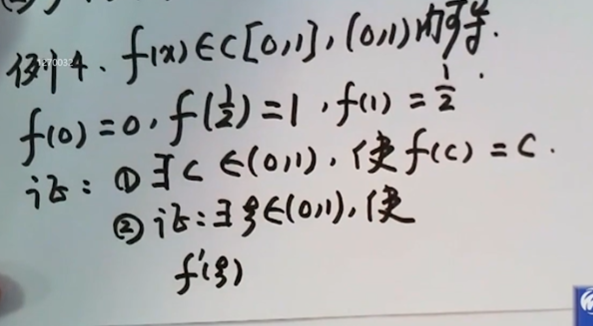 例4、f(x)∈C[0,1],(0,1)内可导.
1270032
f(0)=0,f(1/2)=1,f(1)=1/2.
证:① ∃c∈(0,1),使f(c)=c.
② 证:∃ξ∈(0,1),使
f'(ξ)